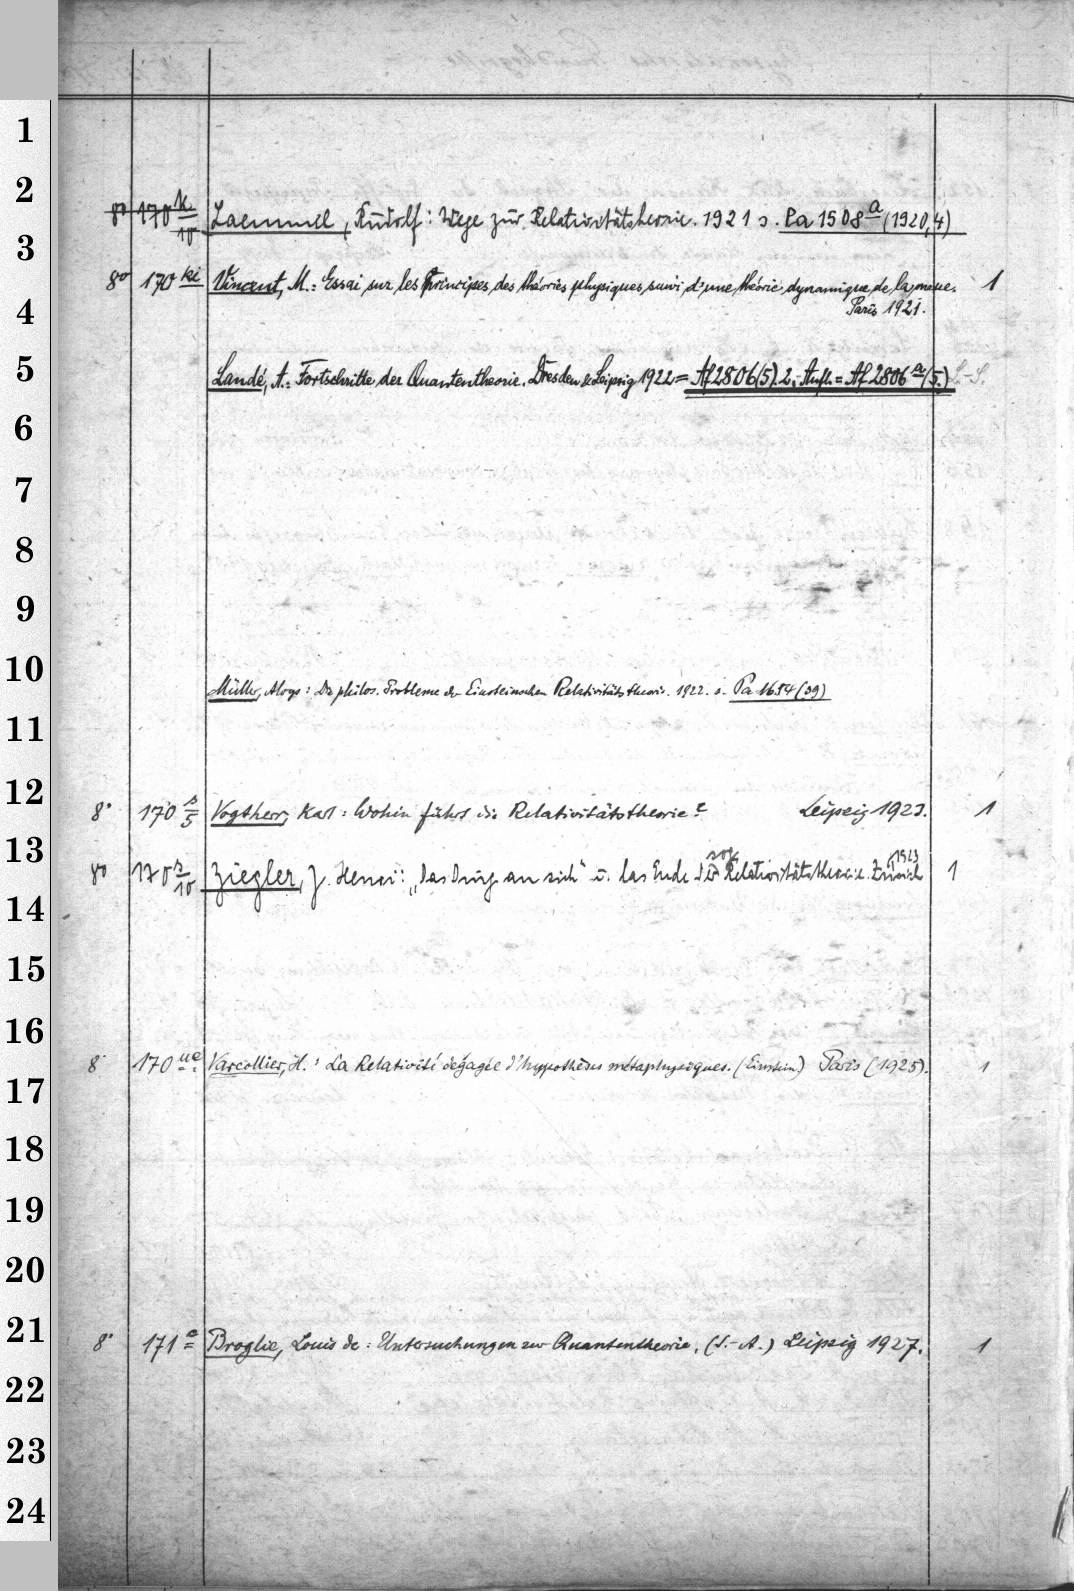 1
2
8° 170 k/10 Laemmel, Rudolf: Wege zur Relativitätstheorie. 1921 s. Pa 1508 a (1920,4)
3
8° 170 ki Vincent, M.: Essai sur les Principes des théories physiques suivi d'une théorie dynamique de la 1
4
Paris 1921.
5
Landé, A.: Fortschritte der Quantentheorie. Dresden & Leipzig 1922 = Af 2806 (5). 2. Aufl. = Af 2806 a (5.) L.-S.
6
7
8
9
10
Müller, Aloys: Die philos. Probleme der Einsteinschen Relativitätstheorie. 1922. s. Pa 1654 (39)
11
12
8° 170 s/5 Vogtherr, Karl: Wohin führt die Relativitätstheorie? Leipzig 1923. 1
13
1923
8° 170 s/10 Ziegler, J. Henri: „Das Ding an sich" u. das Ende der sog. Relativitätstheorie. Zürich 1
14
15
16
8° 170 ue Varcollier, H.: La Relativité dégagée d'hypothèses métaphysiques. (Einstein) Paris (1925). 1
17
18
19
20
21
8° 171 e Broglie, Louis de: Untersuchungen zur Quantentheorie. (S.-A.) Leipzig 1927. 1
22
23
24